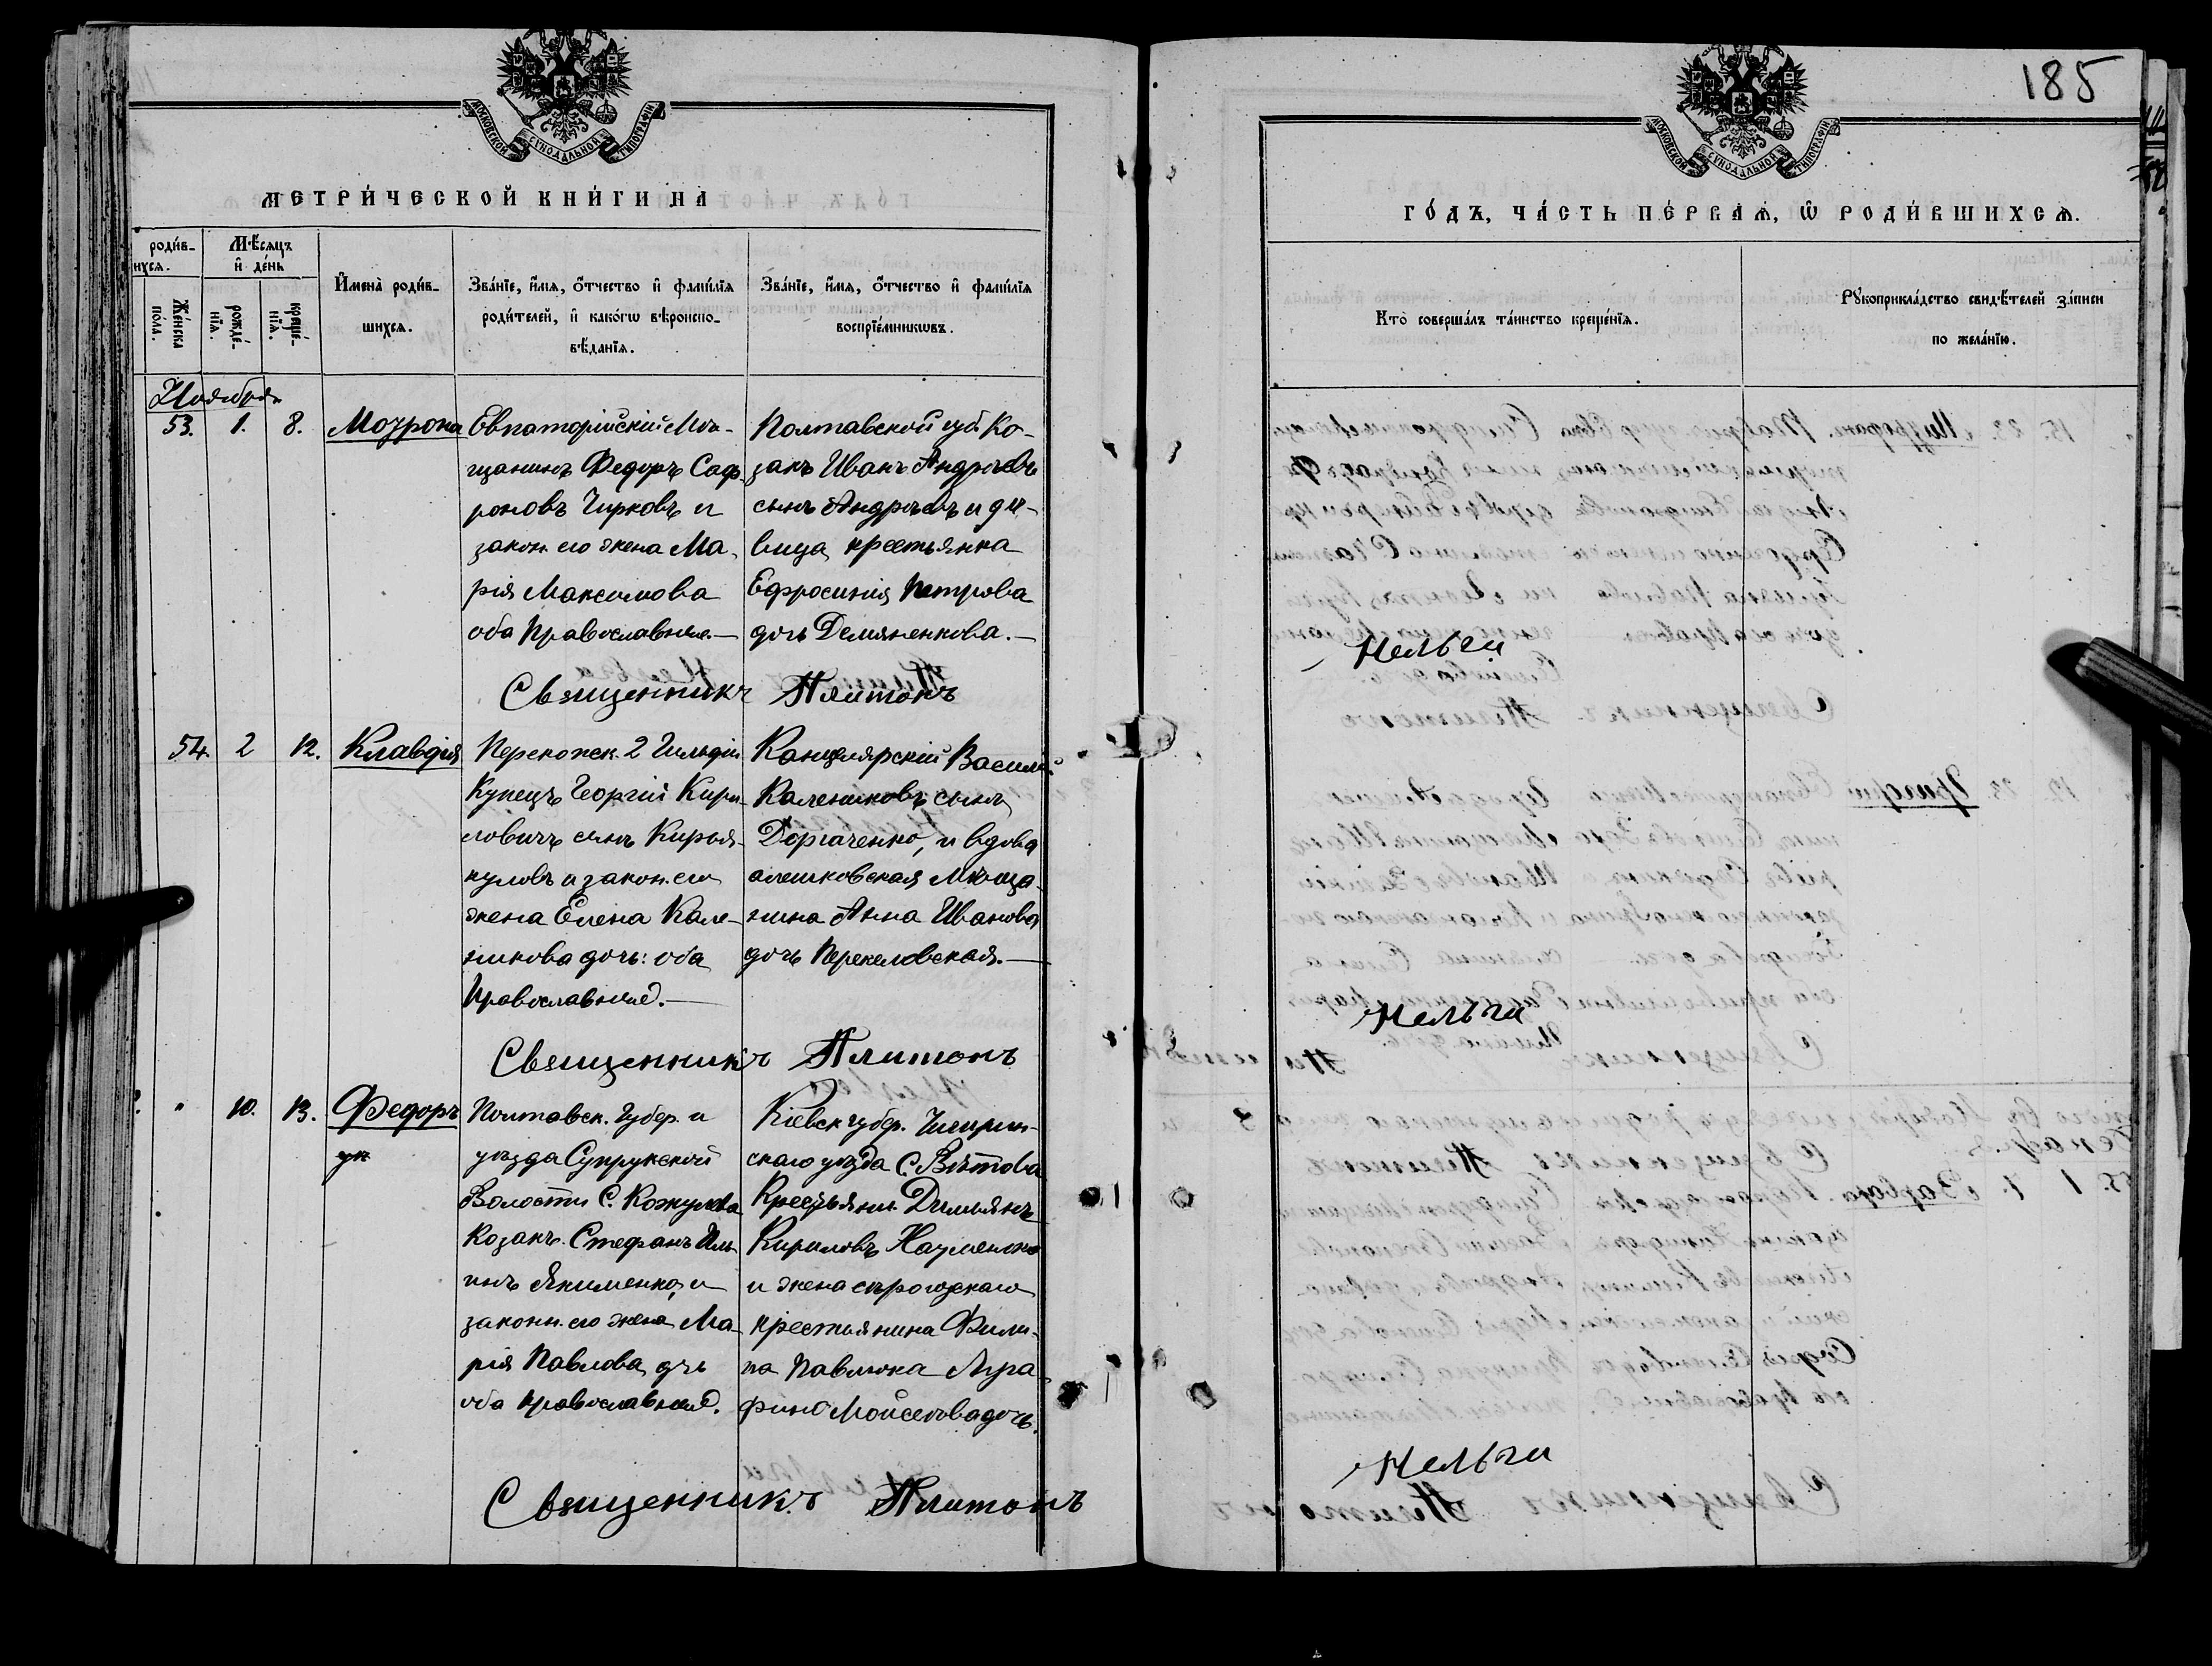 МОСКОВСКОЙ СѴНОДАЛЬНОЙ ТИПОГРАФІИ
МЕТРИ́ЧЕСКОЙ КНИ́ГИ НА
роди́в-
шихсѧ.
Мѣ́сяцъ
и҆ де́нь
Же́нска
по́ла.
рожде́-
нїѧ.
креще́-
нїѧ.
И҆мена̀ роди́в-
шихсѧ.
Зва́нїе, и҆́мѧ, ѻ҆́тчество и҆ фами́лїѧ
роди́телей, и҆ како́гѡ вѣроиспо-
вѣ́данїѧ.
Зва́нїе, и҆́мѧ, ѻ҆́тчество и҆ фами́лїѧ
воспрїе́мникѡвъ.
Ноября
53. 1. 8. Мотрона
Евпаторійскій Мѣ-
щанинъ Федоръ Соф-
роновъ Чирковъ и
закон. его жена Ма-
рія Максимова
оба Православные.—
Полтавской губ. Ко-
закъ Иванъ Андреевъ
сынъ Андреевъ и дѣ-
вица крестьянка
Ефросинія Петрова
дочь Демяненкова.—
Священникъ Плитонъ
54. 2 12. Клавдія
Перекопск. 2 Гильдіи
Купецъ Георгій Кири-
ловичъ сынъ Кирья-
куловъ и закон. его
жена Елена Кале-
никова дочь: оба
Православные.—
Канцелярскій Василій
Калениковъ сынъ
Доргаченко, и вдова
алешковская мѣща-
нина Анна Иванова
дочь Перекеловская.—
Священникъ Плитонъ
" 10. 13. Федоръ
Полтавск. Губер. и
уѣзда Супруновской
Волости С. Кожулова
Козакъ Стефанъ Иль-
инъ Якименко, и
законн. его жена Ма-
рія Павлова дчь
оба православные.
Кіевск губер. Чигирин-
скаго уѣзда С. Вѣтова
Крестьянин Димьянъ
Кириловъ Науменко
и жена сѣрогозскаго
крестьянина Фили-
па Павлюка Агра-
фина Мойсеева дочь.
Священникъ Плитонъ
185
МОСКОВСКОЙ СѴНОДАЛЬНОЙ ТИПОГРАФІИ
ГО́ДЪ, ЧА́СТЬ ПЕ́РВАѦ, Ѡ҆ РОДИ́ВШИХСѦ.
Кто̀ соверша́лъ та́инство креще́нїѧ.
Рꙋкоприкла́дство свидѣ́телей за́писи
по жела́нїю.
Нельги
Нельги
Нельги